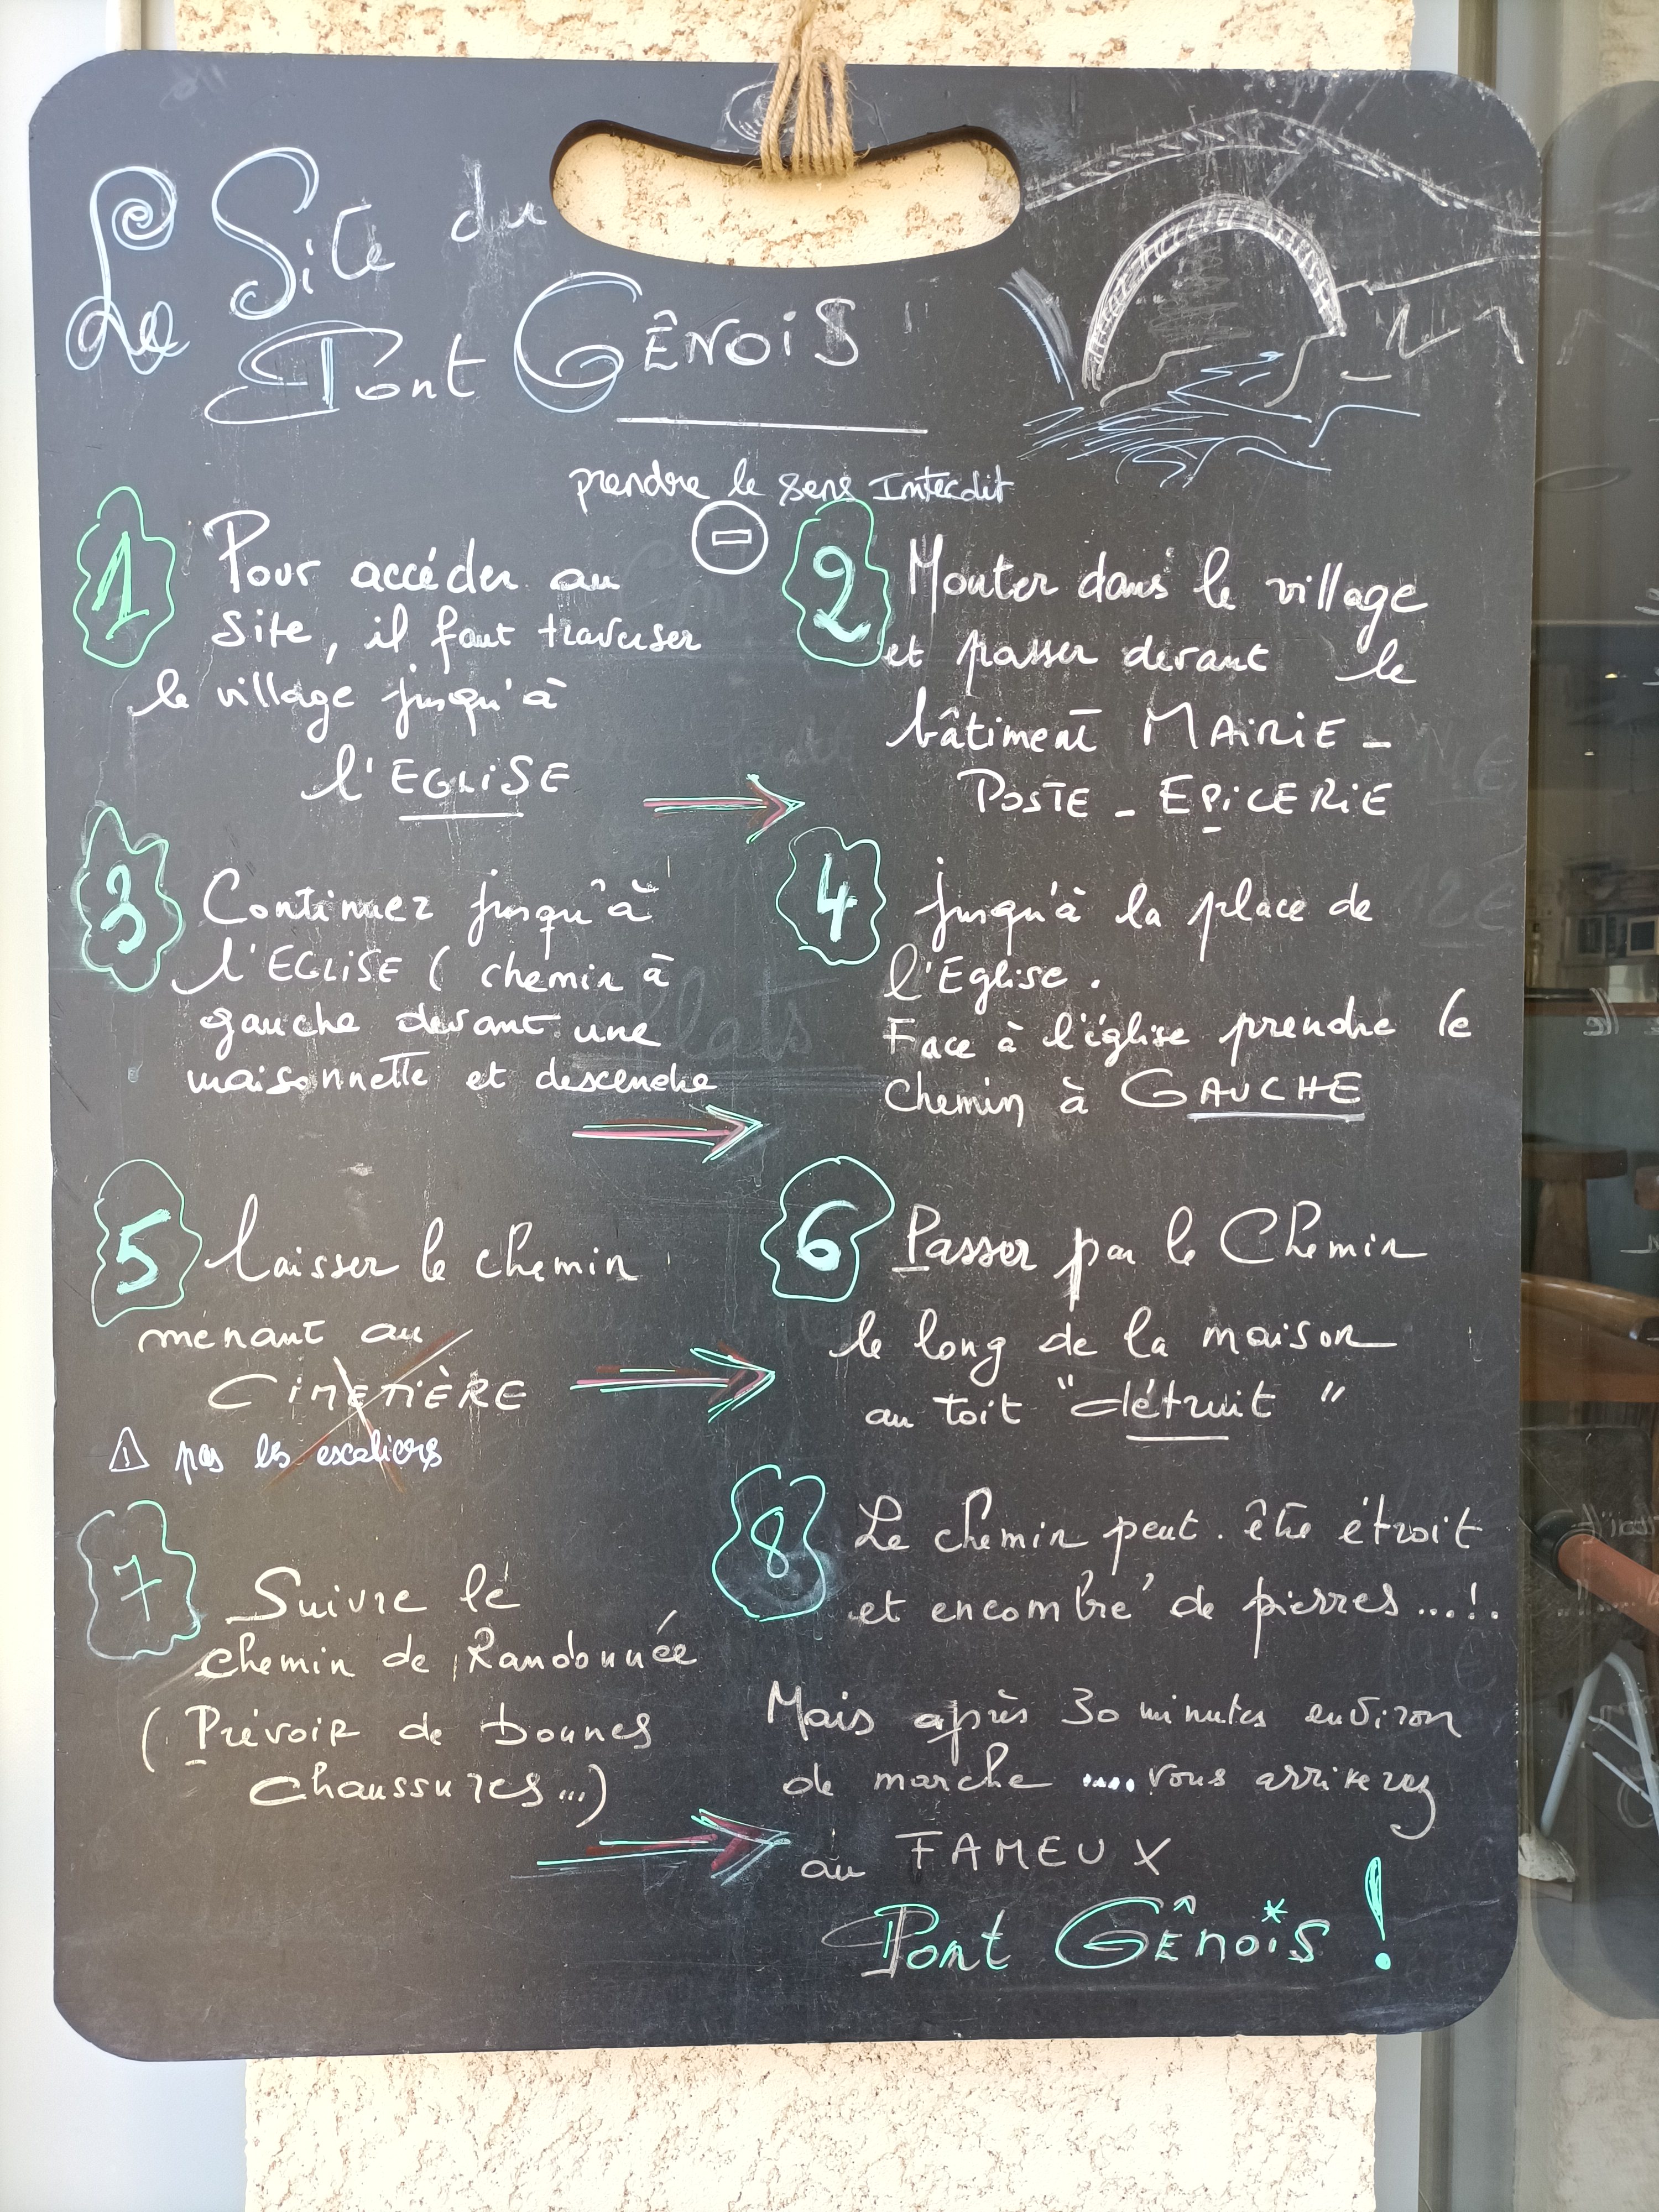 Le Site du
Le Pont GÊNOIS
prendre le sens Interdit
1
Pour accéder au
site, il faut traverser
le village jusqu'à
l'EGLISE
2
Monter dans le village
et passer devant le
bâtiment MAIRIE -
POSTE - EPICERIE
3
Continuez jusqu'à
l'EGLISE ( chemin à
gauche devant une
maisonnette et descendre
4
jusqu'à la place de
l'Eglise.
Face à l'église prendre le
chemin à GAUCHE
5
Laisser le chemin
menant au
CIMETIÈRE
⚠ pas les escaliers
6
Passer par le Chemin
le long de la maison
au toit "détruit"
7
Suivre le
chemin de Randonnée
(Prévoir de bonnes
chaussures...)
8
Le chemin peut être étroit
et encombré de pierres...!.
Mais après 30 minutes environ
de marche .... vous arriverez
au FAMEUX
Pont GÊNOIS !